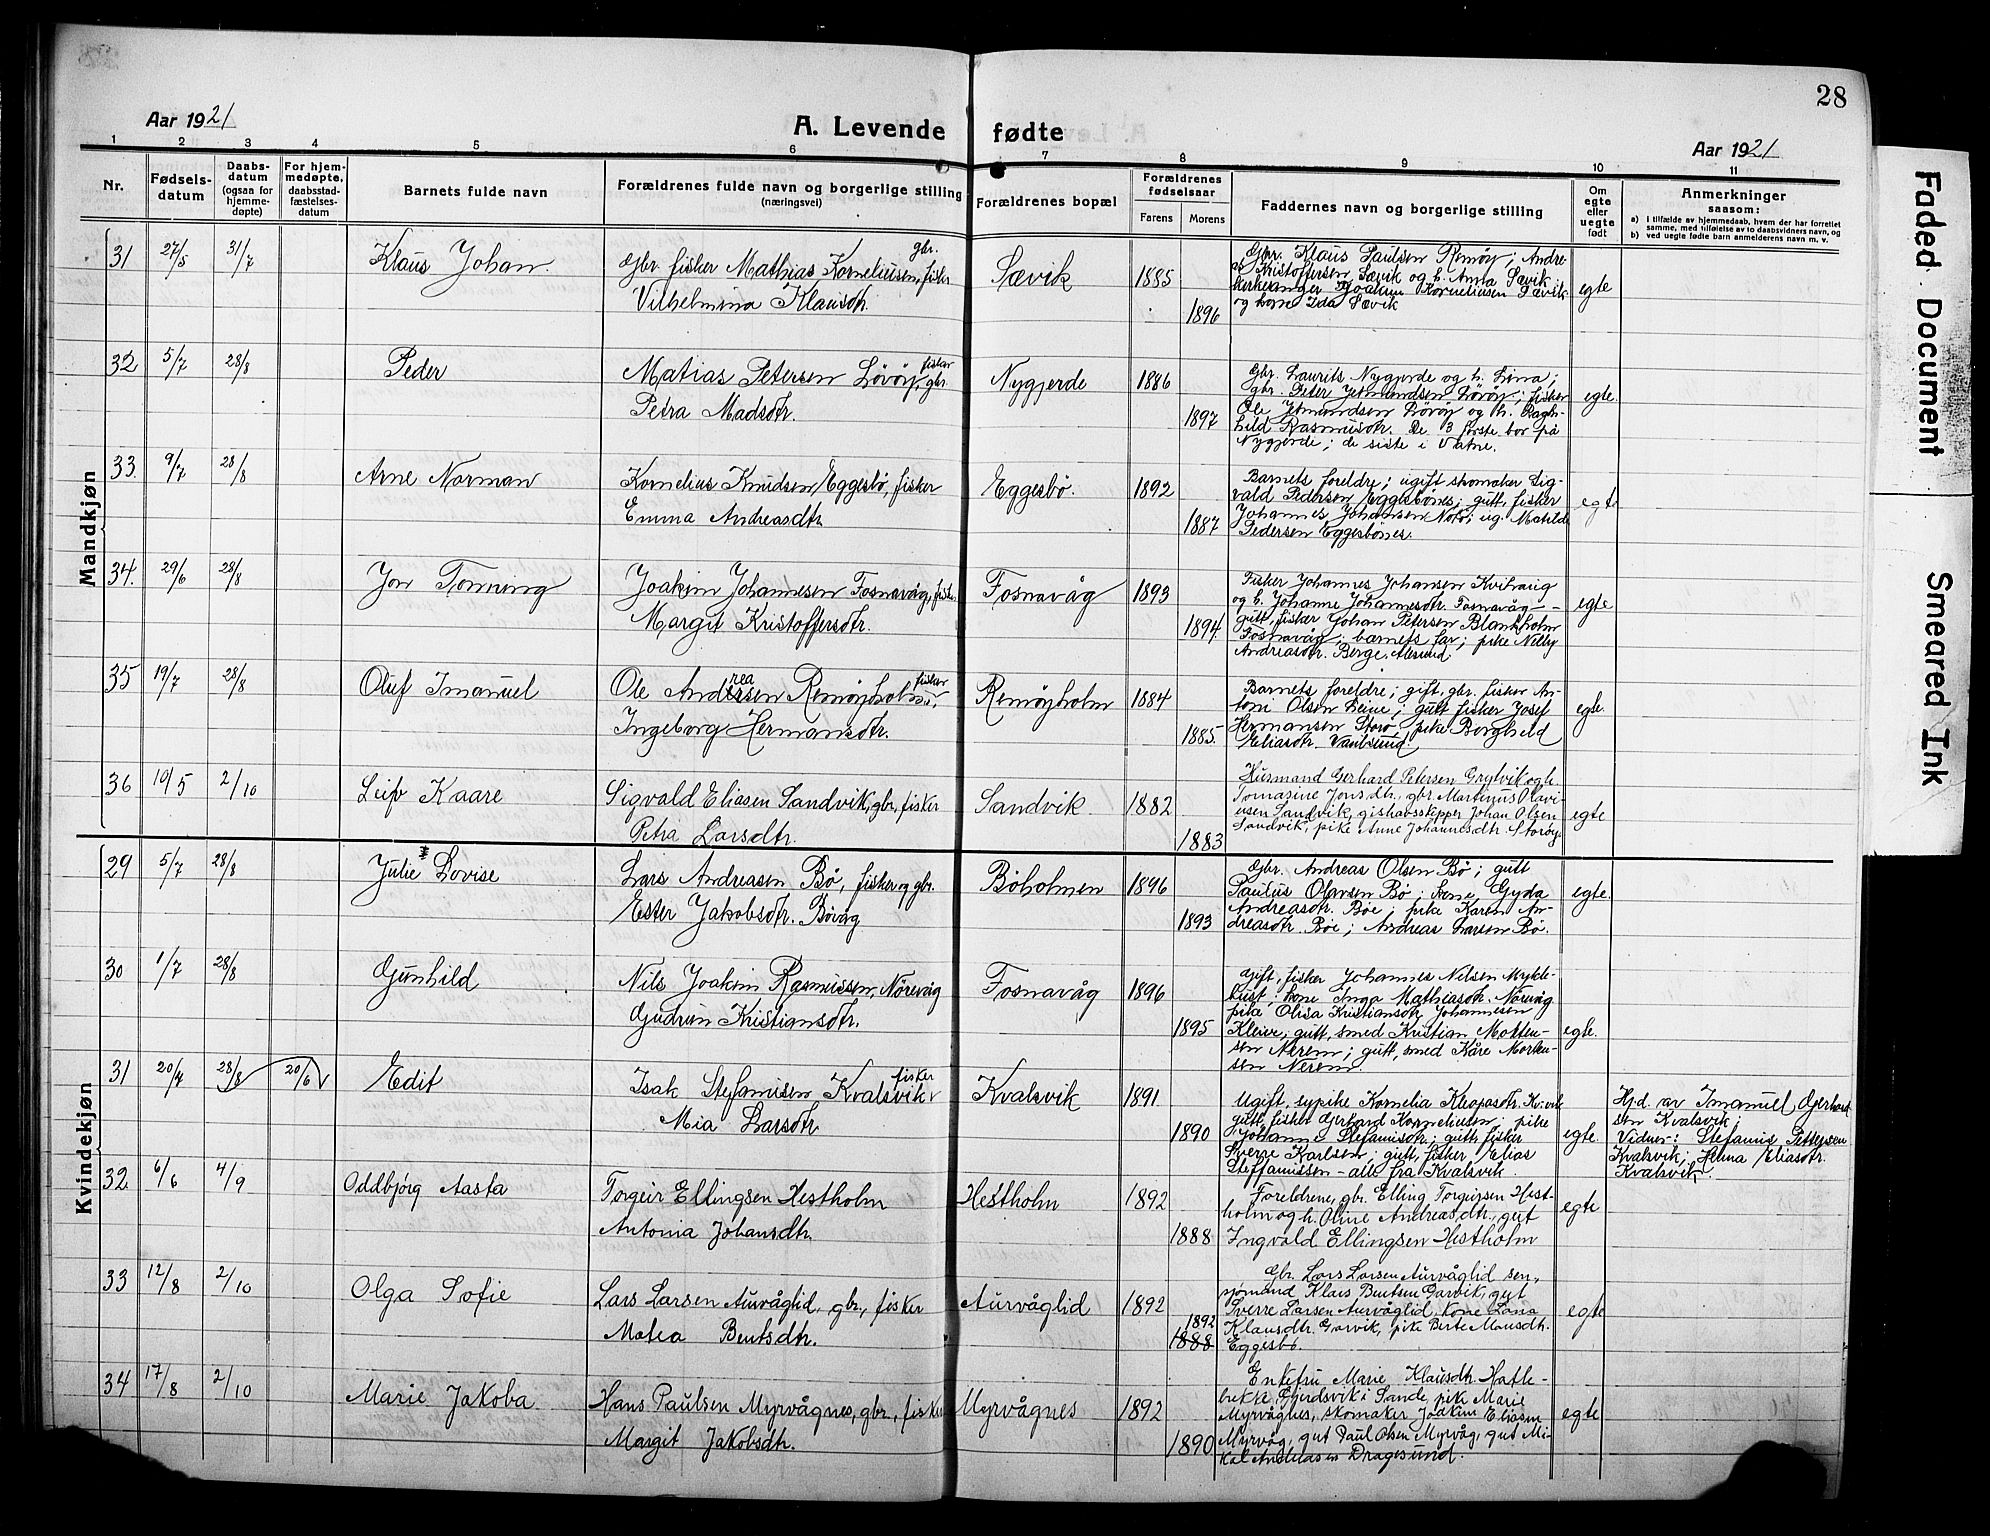 28
Aar 1921
A. Levende fødte
Aar 1921
1 2 3 4 5 6 7 8 9 10 11
Nr.
Fødselsdatum
Daabsdatum (ogsaa for hjemmedøpte)
For hjemmedøpte, daabsstadfæstelsesdatum
Barnets fulde navn
Forældrenes fulde navn og borgerlige stilling (næringsvei)
Forældrenes bopæl
Forældrenes fødselsaar
Farens Morens
Faddernes navn og borgerlige stilling
Om egte eller uegte født
Anmerkninger saasom:
a) I tilfælde av hjemmedaab, hvem der har forrettet samme, med tilføielse av to daabsvidners navn, og
b) ved uegte fødte barn anmelderens navn m. v.
Mandkjøn
31 27/5 31/7 Klaus Johan. Gbr. fisker Mathias Korneliusen, gbr. fisker Sævik 1885 egte
Vilhelmina Klausdtr. 1896
Gbr. Klaus Paulsen Remøy; Andre-
as Kristoffersen Sævik og h. Anna Sævik
kirkesanger Joakim Korneliusen Sævik
og kone Ida Sævik
32 5/7 28/8 Peder Matias Petersen Løvøy fisker gbr. Nygjerde 1886 egte.
Petra Madsdtr. 1897
Gbr. Laurits Nygjerde og h. Lina;
gbr. Peter Jetmundsen Løvøy; fisker
Ole Jetmundsen Løvøy og h. Ragn-
hild Rasmusdtr. De 3 første bor på
Nygjerde; de siste i Vatne.
33. 9/7 28/8 Arne Norman Kornelius Knudsen Eggesbø, fisker Eggesbø. 1892 egte
Emma Andreasdtr 1887
Barnets foreldre; ugift skomaker Sig-
vald Pedersen Eggesbønes; gutt, fisker
Johannes Johansen ug. Matilde
Pedersen Eggesbønes.
34. 29/6 28/8 Jon Tonning Joakim Johannesen Fosnavåg, fisker Fosnavåg 1893 egte
Margit Kristoffersdtr. 1894
Fisker Johannes Johansen
og h. Johanne Johannesdtr. Fosnavåg -
gutt, fisker Johan Petersen Blankholm
Fosnavåg; barnets far; pike Nelly
Andreasdtr. Berge, Alesund
35 19/7 28/8 Oluf Imanuel Ole Andreasen Remøyholm fisker Remøyholm 1884 egte.
Ingeborg Hermansdtr. 1885.
Barnets foreldre; gift, gbr. fisker An-
ton Olsen Leine; gutt fisker Josef
Hermansen Storø, pike Borghild
Eliasdtr.
36 10/5 2/10 Leif Kaare Sigvald Eliasen Sandvik, gbr, fisker Sandvik 1882 egte
Petra Larsdtr. 1883
Husmand Gerhard Petersen Grytvik og h.
Tomasine Jonsdtr., gbr Martinus Olavi-
usen Sandvik, Johan Olsen
Sandvik, pike Anne Johannesdtr Storøy
Kvindekjøn
29 5/7 28/8 Julie Lovise Lars Andreasen Bø, fisker og gbr. Bøholmen 1896 egte.
Ester Jakobsdtr. Bøvåg 1893
Gbr. Andreas Olsen Bø; gutt
Paulus Olavsen Bø; kone Gyda
Andreasdtr. Bøe; pike Karen An-
dreasdtr. Bøe; Andreas Larsen Bø.
30 1/7 28/8 Gunhild Nils Joakim Rasmussen, Nørevåg Fosnavåg 1896 egte.
Gudrun Kristiansdtr. 1895
Gift, fisker Johannes Nilsen Mykle-
bust; kone Inga Mathiasdtr. Nørvåg
pike Olisa Kristiansdtr Johannesen
Kleive; gutt, smed Kristian Motten-
sen Nerem; gutt, smed Kåre Morten-
sen Nerem.
31 20/4 28/8 20/6 Edit Isak Stefanisen Kvalsvik fisker Kvalsvik 1891 egte.
Mia Larsdtr 1890
Ugift, sypike Kornelia Kleopasdtr.
gutt, fisker Gerhard Korneliusen, pike
Johanne Stefanisdtr; gutt, fisker
Sverre Karlsen; gutt, fisker Elias
Steffanissen - alle fra Kvalsvik.
Hj.d. av Imanuel Gerhard
sen Kvalsvik;
Vidner: Stefanis Pettersen
Kvalsvik; Helma Eliasdtr.
Kvalsvik.
32 6/6 4/9 Oddbjørg Aasta Torgeir Ellingsen Hestholm Hestholm 1892 egte
Antonia Johansdtr. 1888
Foreldrene, gbr. Elling Torgeirsen Hest-
holm og h. Oline Andreasdtr., gut
Ingvald Ellingsen Hestholm
33 12/8 2/10 Olga Sofie Lars Larsen Aurvåglid, gbr., fisker Aurvåglid 1892 egte
Matea Bentsdtr. 1892 1888
Gbr. Lars Larsen Aurvåglid sen.,
sjømand Klaus Bentsen Garvik, gut
Sverre Larsen Aurvåglid, kone Lina
Klausdtr. Garvik, pike Berte Monsdtr.
Eggesbø.
34 17/8 2/10 Marie Jakoba Hans Paulsen Myrvågnes, gbr., fisker Myrvågnes 1892 egte
Margit Jakobsdtr. 1890
Enkefru Marie Klausdtr. Hatle-
brekke, Gjerdsvik i Sande, pike Marie
Myrvågnes, skomaker Joakim Eliasen
Myrvåg, gut Paul Olsen Myrvåg, gut Mi-
kal Andreasen Dragesund.
Faded Document
Smeared Ink